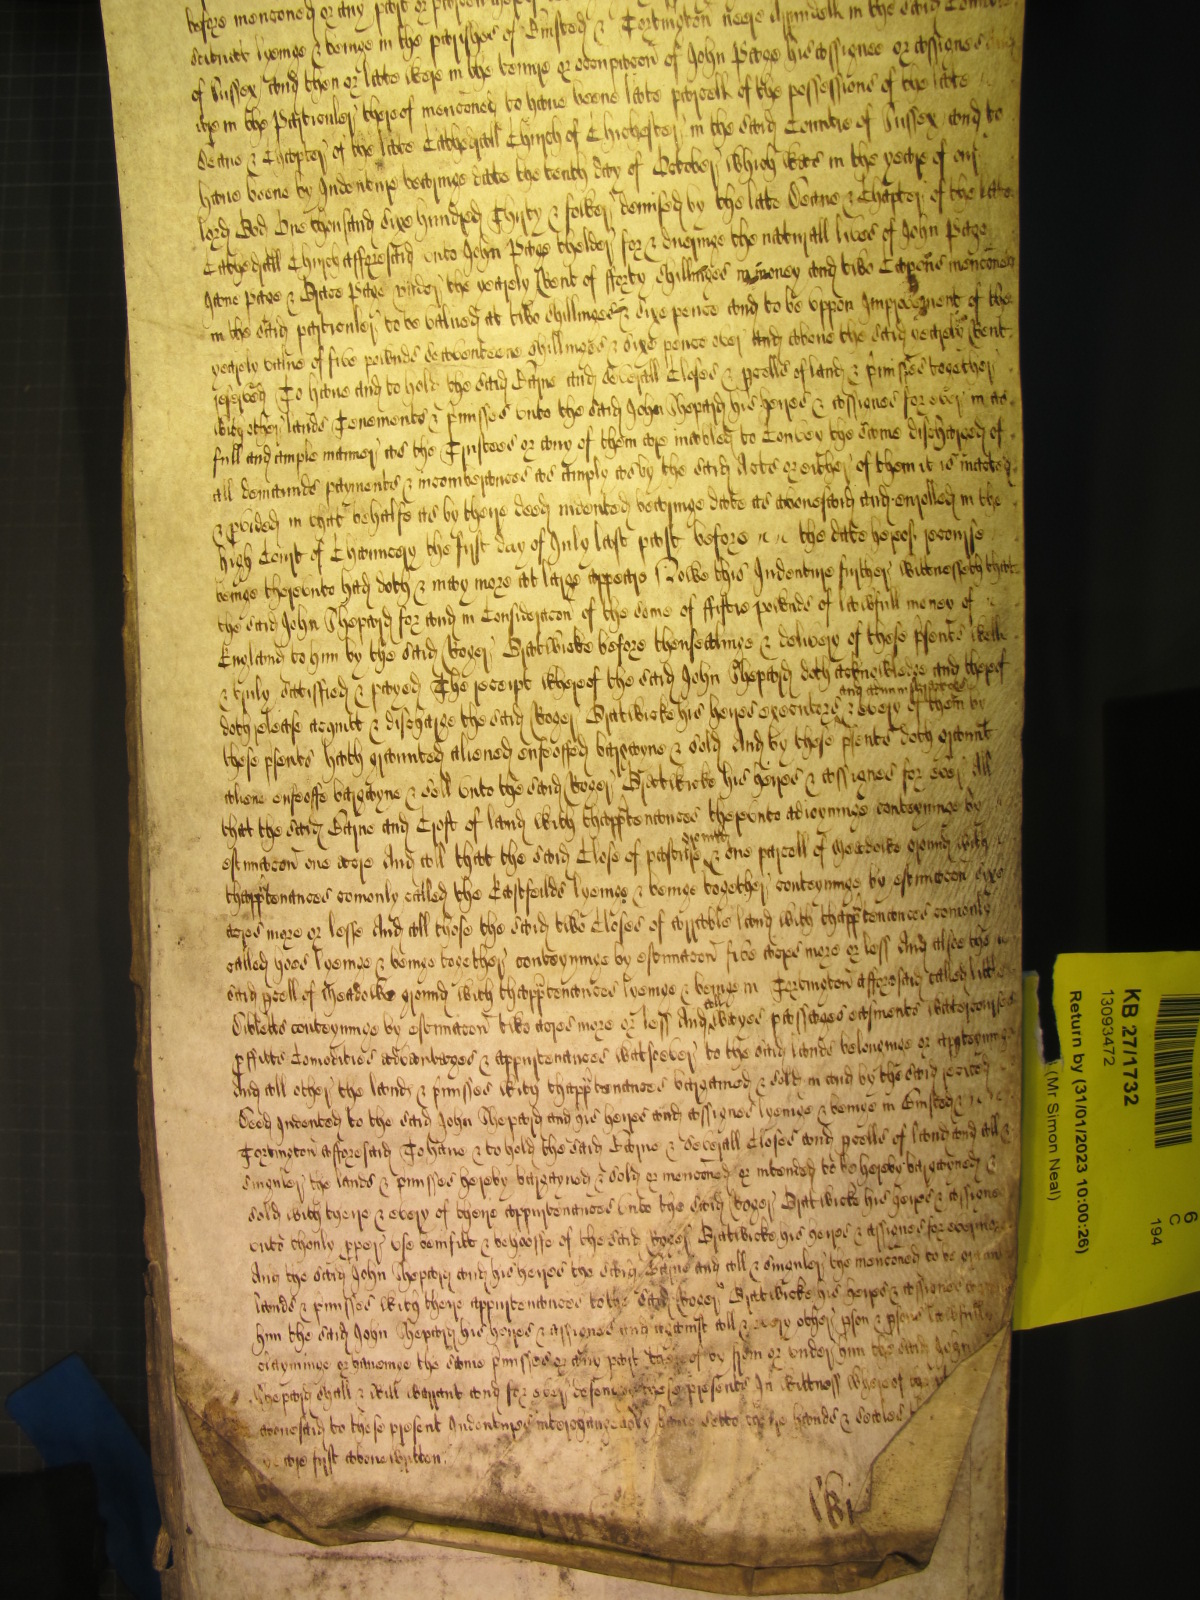 before menconed or any part or parcell
scituate lyeinge & beinge in the parishes of Binsted & Tortington neere Arundell in the said Countie
of Sussex and then or late were in the tenure or occupacon of John Page his assignee or assignes
are in the Particuler thereof menconed to have beene late parcell of the possessions of the late
Deane & Chapter of the late Cathedrall Church of Chichester in the said Countie of Sussex and to
have beene by Indenture bearinge date the tenth day of October which was in the yeare of our
lord God One thousand sixe hundred Thirty & fower demised by the late Deane & Chapter of the late
Cathedrall Church afforesaid unto John Page thelder for & dueringe the naturall lives of John Page
Jane Page & Grace Page under the yearely Rent of fforty shillinges in money and two Capons menconed
in the said particuler to be valued at two shillinges & sixe pence and to be uppon Improvement of the
yearely value of five pownds seaventeene shillinges & sixe pence over and above the said yearely Rent
reserved To have and to hold the said Barne and severall Closes & pcells of land & pmisses together
with other lands Tenements & pmisses unto the said John Shepard his heires & assignes for ever in as
full and ample manner as the Trustees or any of them are inabled to Convey the same discharged of
all demaunds payments & incombrances as amply as by the said Acts or either of them it is inacted
& pvided in that behalfe as by there deed indented bearinge date as abovesaid and enrolled in the
high Court of Chauncery the first day of July last past before the date hereof recourse
beinge thereunto had doth & may more at large appeare Nowe this Indenture further wittnesseth that
the said John Shepard for and in Consideracon of the some of ffiftie pownds of lawfull money of
England to him by the said Roger Bratwicke before thensealinge & delivery of these psents well
& truly satisfied & payed The receipt whereof the said John Shepard doth acknowledge and thereof
doth release acquitt & discharge the said Roger Bratwicke his heires executors and administrators & every of them by
these psents hath graunted aliened enfeoffed bargayne & sold And by these psents doth graunt
aliene enfeoffe bargayne & sell unto the said Roger Bratwicke his heires & assignes for ever All
that the said Barne and Croft of land with thapptenances thereunto adioyninge conteyninge by
estimacon one acre And all that the said Close of pasture ground & one parcell of Meadowe ground with
thapptenances comonly called the Eastfeilds lyeinge & beinge together conteyninge by estimacon sixe
acres more or lesse And all those the said two Closes of arrable land with thapptenances comonly
called lyeinge & beinge together conteyninge by estimacon five acres more or less And alsoe the
said pcell of Meadowe ground with thapptenances lyeinge & beinge in Tortington afforesaid called little
conteyninge by estimacon two acres more or less And all wayes passages easments watercourses
pffitts Comodities advantages & appurtenances watsoever to the said lands belonginge or apperteyninge
And all other the lands & pmisses with thapptenances bargained & sold in and by the said recited
Deed Indented to the said John Shepard and his heires and assignes lyeinge & beinge in Binsted &
Tortington afforesaid To have & to hold the said Barne & severall Closes and pcells of land and all &
singuler the lands & pmisses hereby bargayned & sold or menconed or intended to be hereby bargayned &
sold with there & every of there appurtenances unto the said Roger Bratwicke his heires & assignes
unto thonly pper use benifitt & behoofe of the said Roger Bratwicke his heires & assignes for evermore
And the said John Shepard and his heires the said Barne and all & singuler the menconed to be
lands & pmisses with there appurtenances to the said Roger Bratwicke his heires & assignes
him the said John Shepard his heires & assignes and against all & every other pson & psons lawfully
clayminge or haveinge the same pmisses or any part thereof by from or under him the said John
Shepard shall & will warrant and for ever defend by these presents In wittness whereof
abovesaid to these present Indentures interchangeably have sette there hands & seales
yeare first abovewritten.
KB 27/1732
13093472
Return by (31/01/2023 10:00:26)
(Mr Simon Neal)
6
C
194